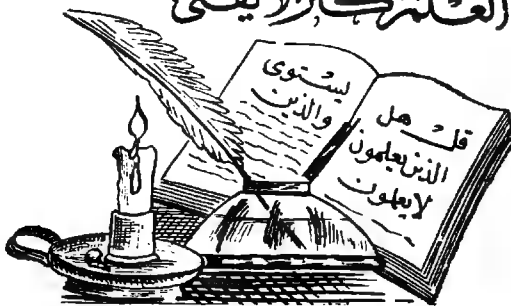 العلم كنز لا يفنى
قل هل يستوى
الذين يعلمون والذين
لا يعلمون